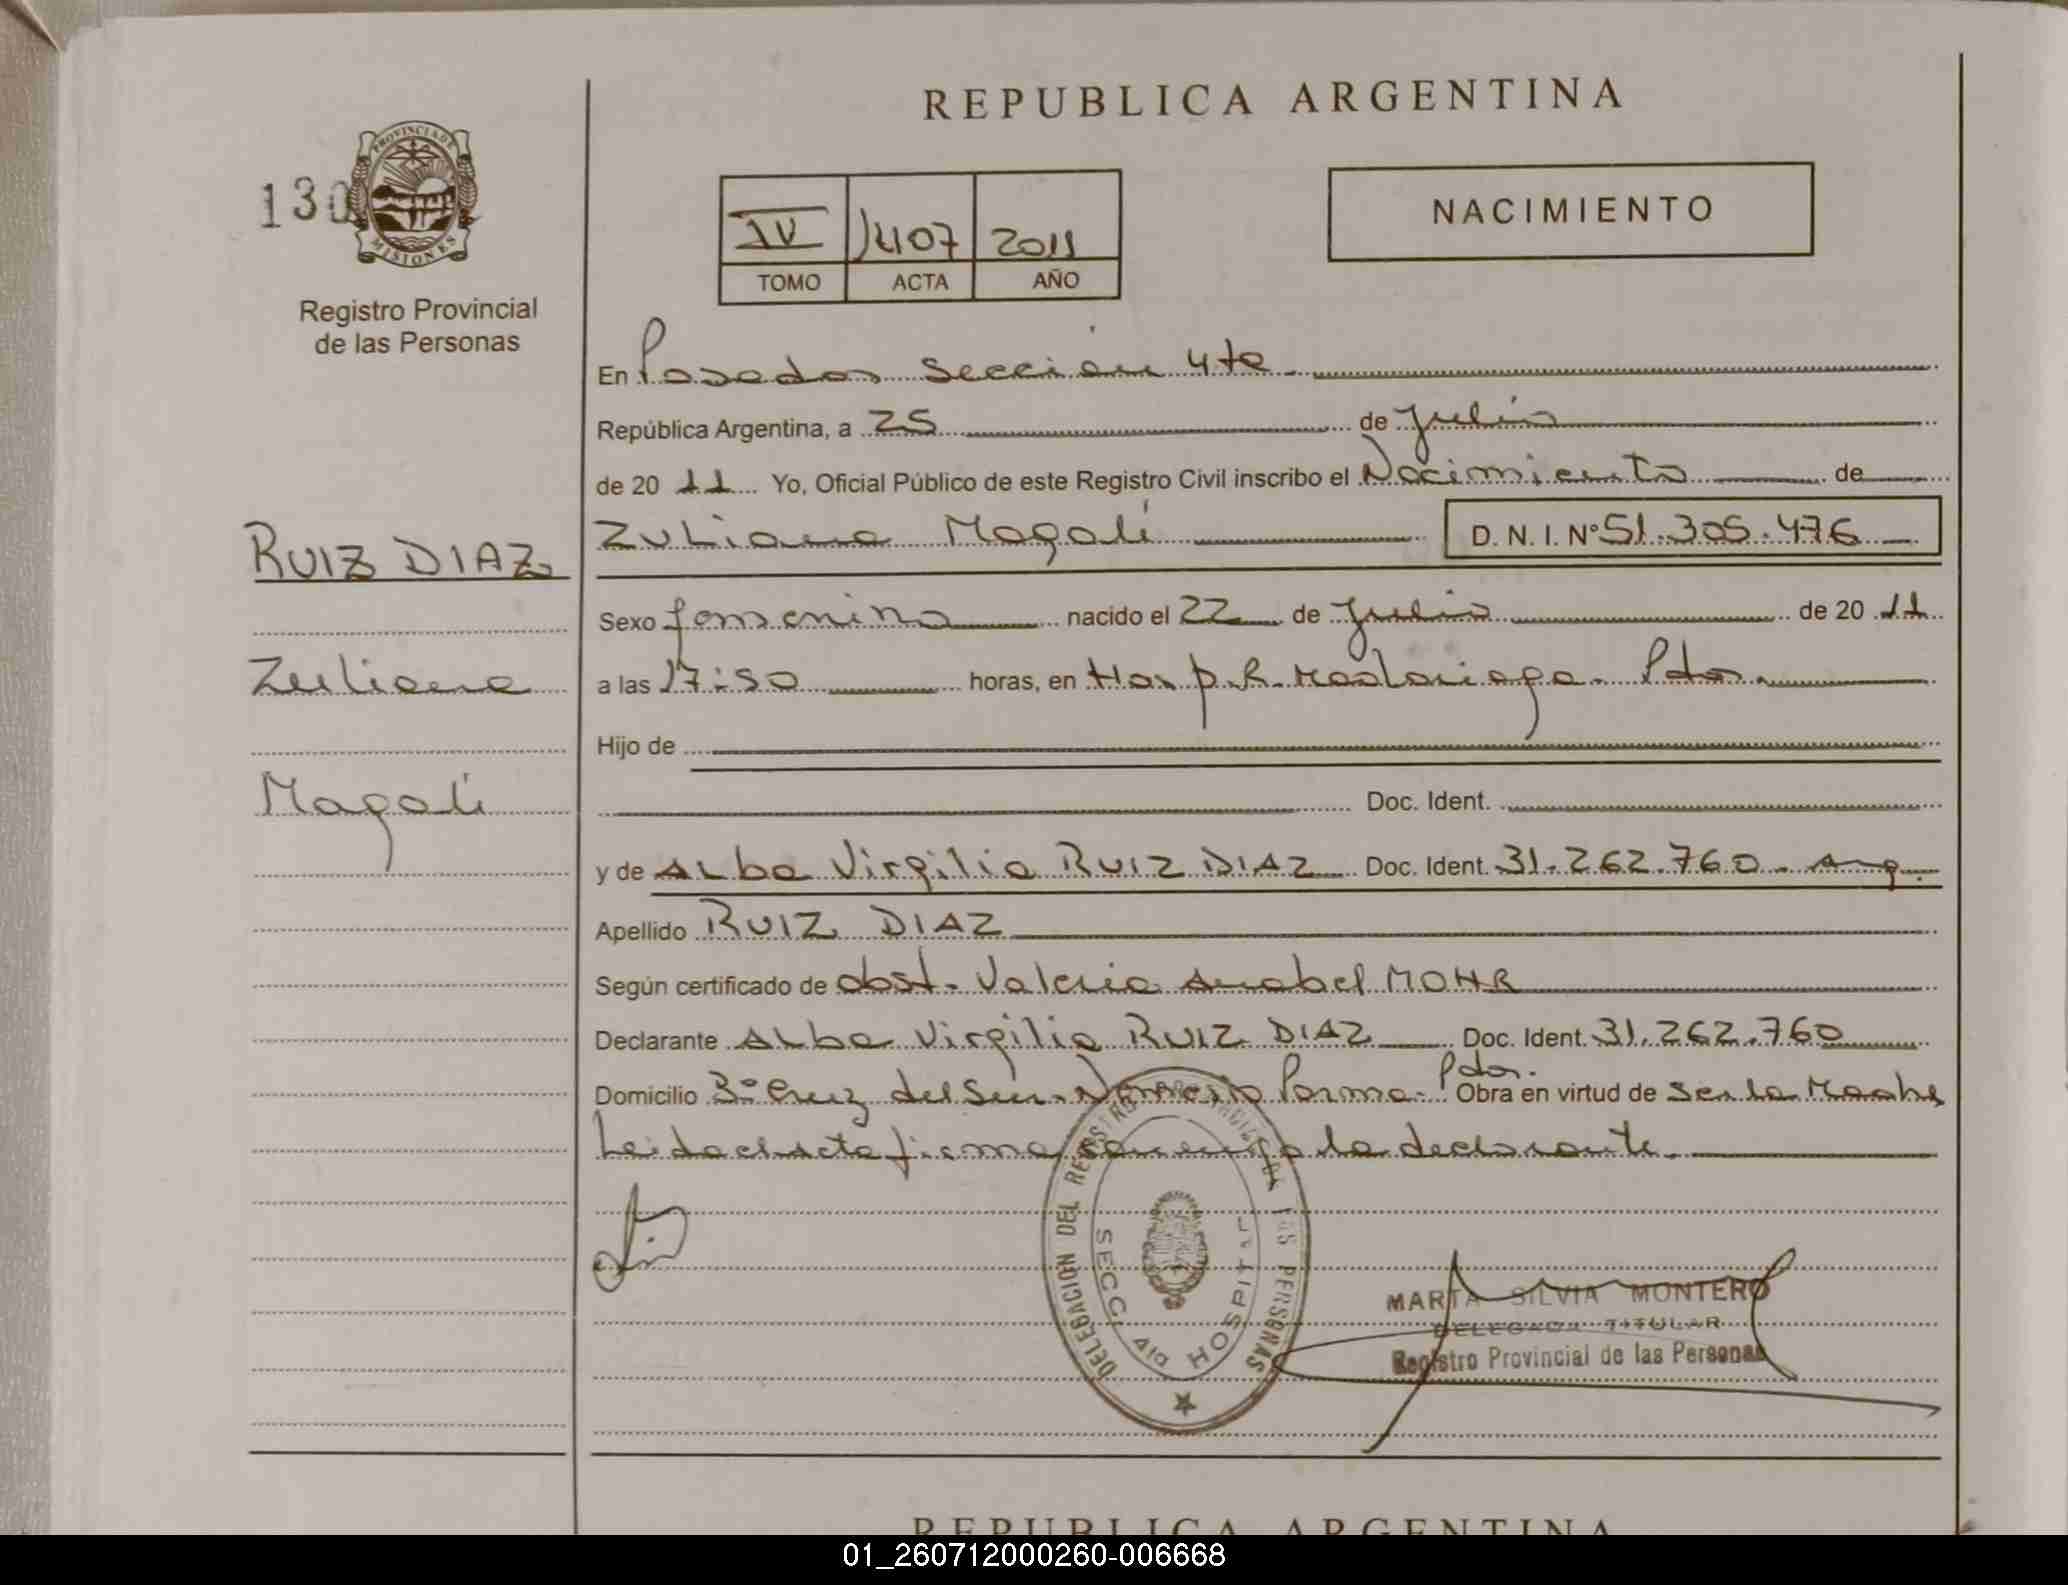 REPUBLICA ARGENTINA
130
PROVINCIA DE
MISIONES
Registro Provincial
de las Personas
IV 1407 2011
TOMO ACTA AÑO
NACIMIENTO
En Posadas Sección 4ta
República Argentina, a 25 de Julio
de 20 11 Yo, Oficial Público de este Registro Civil inscribo el Nacimiento de
RUIZ DIAZ
Zuliana Magalí D. N. I. Nº 51.305.476
Sexo femenino nacido el 22 de Julio de 20 11
Zuliana
a las 17:50 horas, en Hosp. R. Madariaga. Pdas.
Hijo de
Magalí
Doc. Ident.
y de Alba Virgilia RUIZ DIAZ Doc. Ident. 31.262.760 - Arg.
Apellido RUIZ DIAZ
Según certificado de obst. Valeria Anabel MOHR
Declarante Alba Virgilia RUIZ DIAZ Doc. Ident. 31.262.760
Domicilio 3º Cruz del Sur. Nemesio Parma. Pdas. Obra en virtud de ser la Madre
Leida el acta firma conmigo la declarante.
DELEGACION DEL REGISTRO PROVINCIAL DE LAS PERSONAS
SECC. 4ta HOSPITAL
MARTA SILVIA MONTERO
DELEGADA TITULAR
Registro Provincial de las Personas
REPUBLICA ARGENTINA
01_260712000260-006668